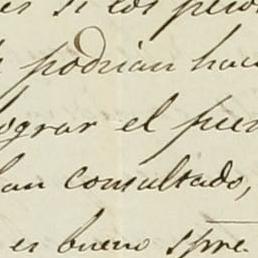 es si los peso
podrian hac
lograr el pue
han consultado,
es bueno spre.